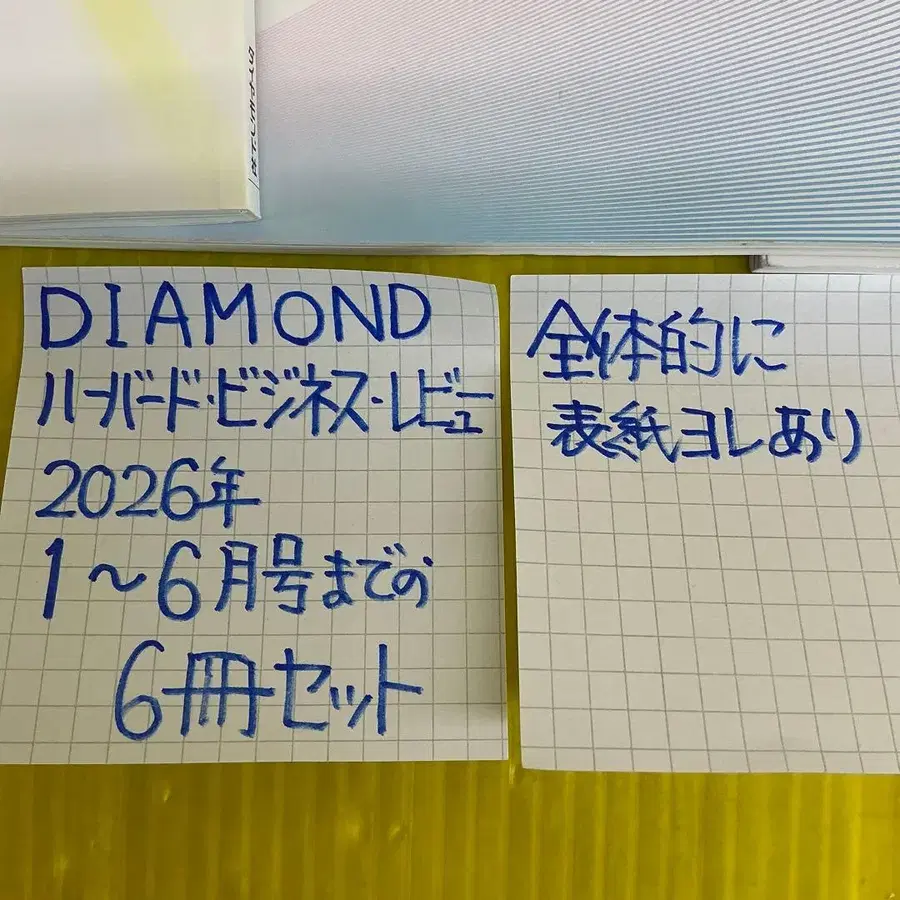 DIAMOND
ハーバード・ビジネス・レビュー
2026年
1〜6月号までの
6冊セット
全体的に
表紙ヨレあり